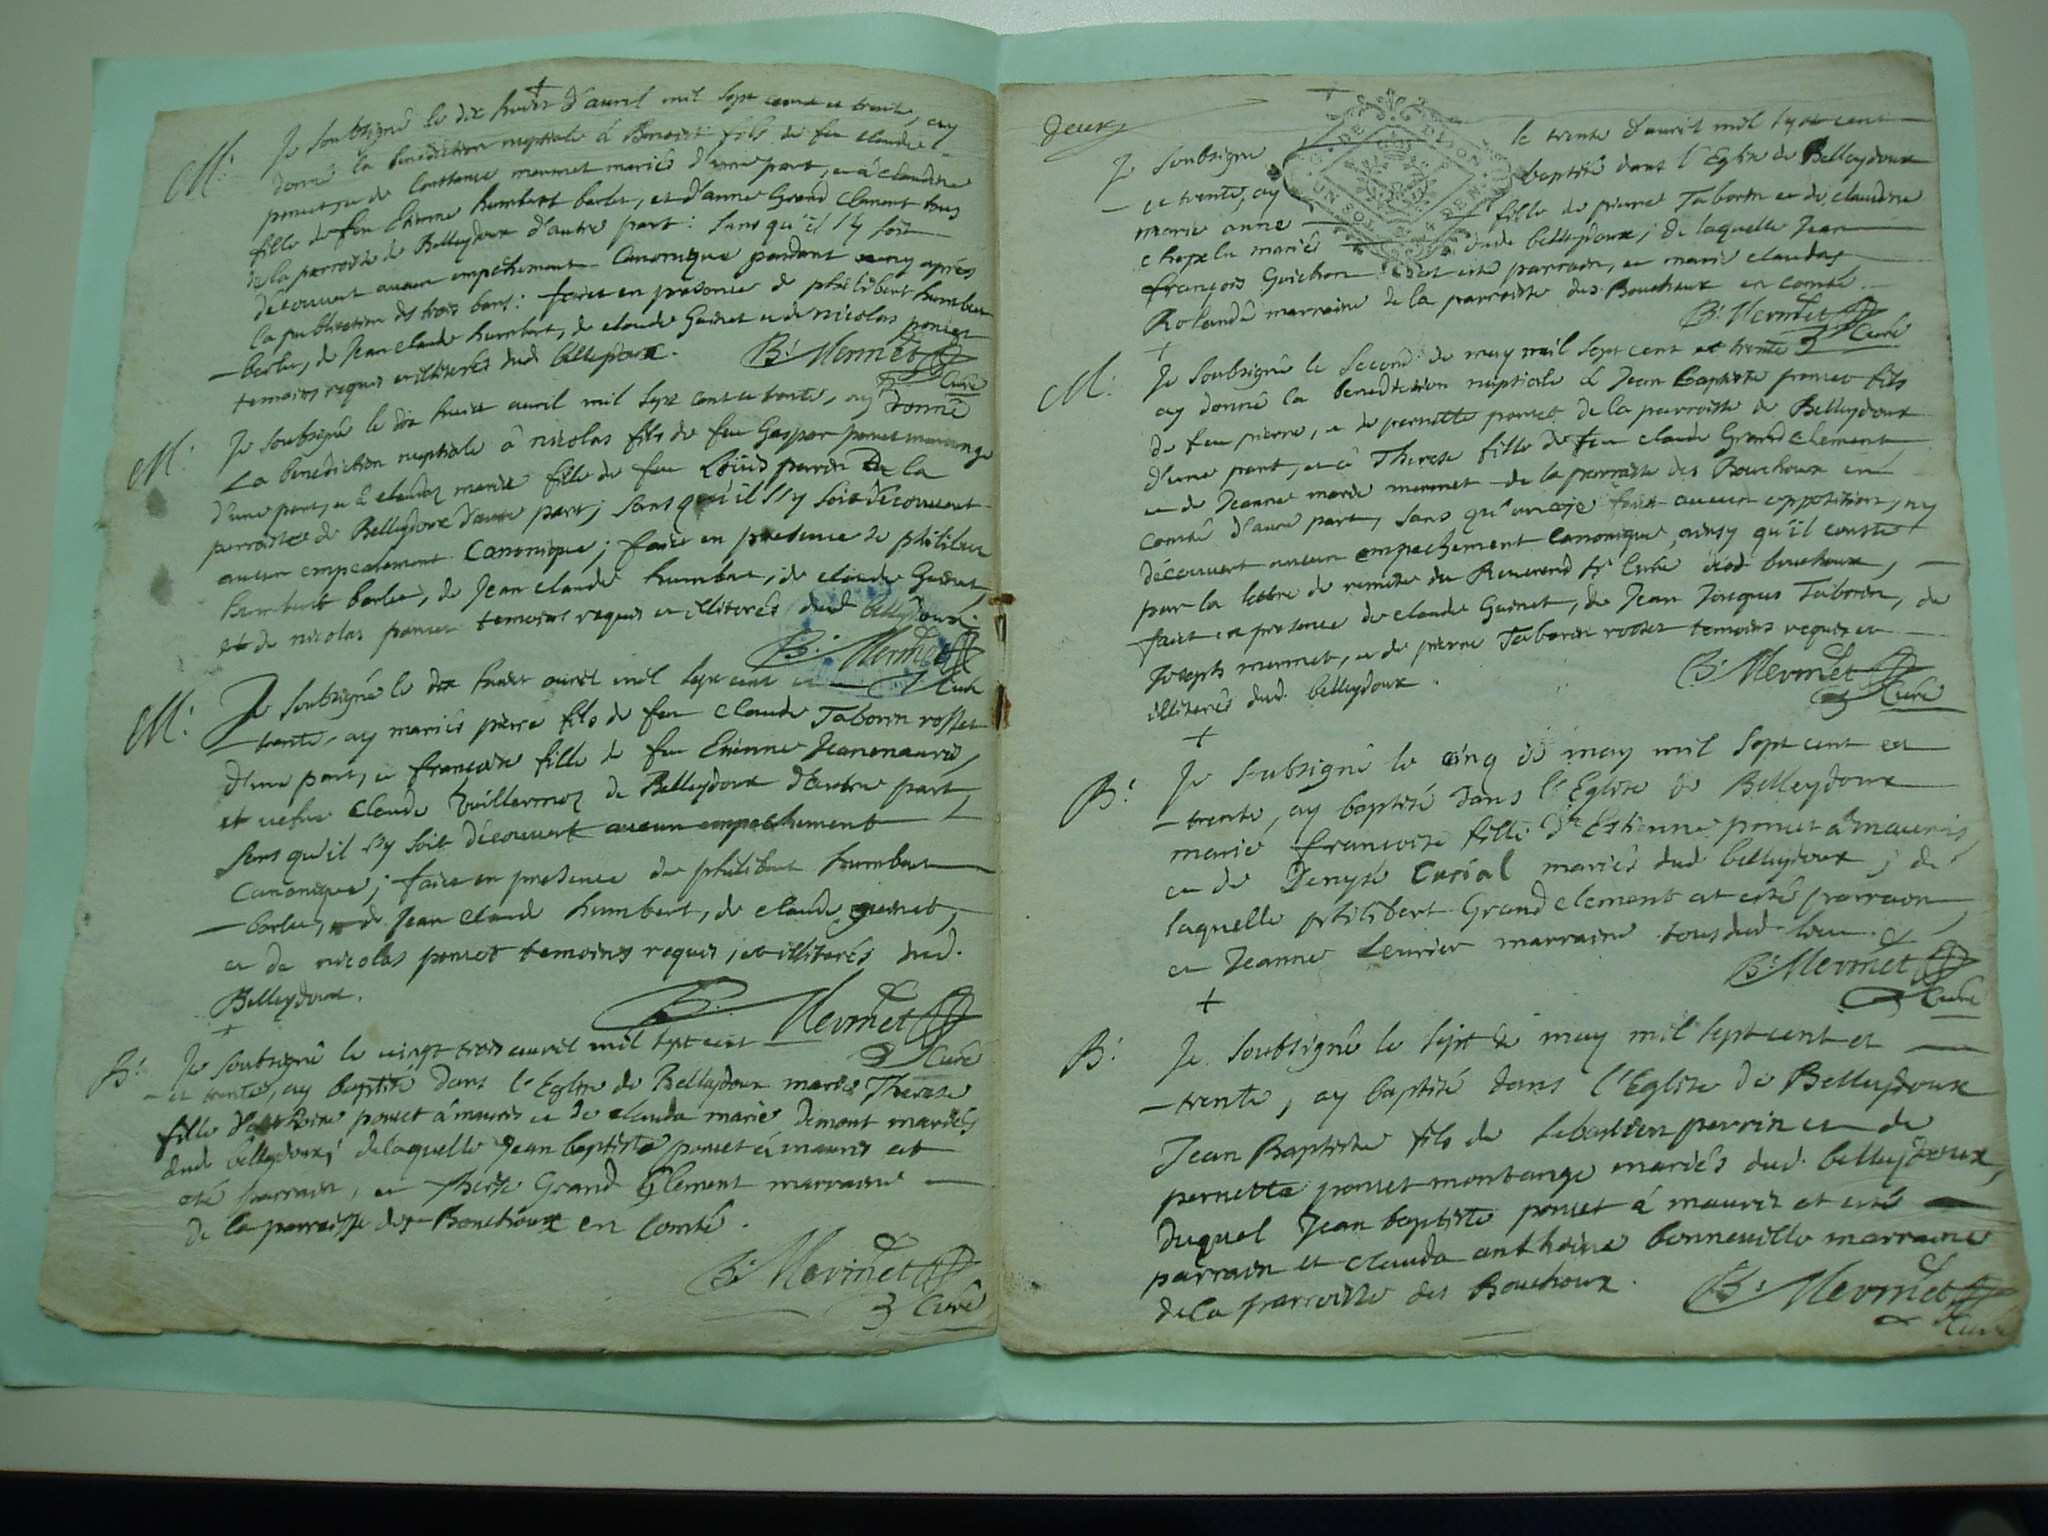 M.
Je soubsigné le dix huict d'avril mil sept cent et trente, ay
donné la benediction nuptiale à Benoist fils de feu claude
poncet, et de Constance mermet mariés d'une part, et à claudine
fille de feu Etienne humbert barlet, et d'anne Grand Clement tous
de la parroisse de Belleydoux d'autre part: sans qu'il s'y soit
découvert aucun empêchement Canonique pendant ny après
la publication des trois bans: faict en presence de philibert humbert
barlet, de Jean claude humbert, de claude Guinet et de nicolas poncet
temoins requis et illiterés dud belleydoux.
B. Mermet
Curé
M.
Je soubsigné le dix huict avril mil sept cent et trente, ay donné
La benediction nuptiale à nicolas fils de feu Gaspar poncet montange
d'une part, et à claudaz marie fille de feu Loüis perrin De la
parroisse de Belleydoux d'autre part; sans qu'il s'y soit découvert
aucun empechement Canonique; faict en presence de philibert
humbert barlet, de Jean claude humbert, de claude Guinet,
et de nicolas poncet temoins requis et illiterés dud belleydoux.
B. Mermet
Curé
M.
Je soubsigné le dix huict avril mil sept cent et
trente, ay mariés pierre fils de feu claude Taborin rosset
d'une part, et françoise fille de feu Etienne Jeanmauris,
et vefve claude Vuillermoz de Belleydoux d'autre part,
sans qu'il s'y soit découvert aucun empechement
Canonique; faict en presence de philibert humbert
barlet, de Jean claude humbert, de claude guinet,
et de nicolas poncet temoins requis, et illiterés dud.
Belleydoux.
B. Mermet
Curé
B.
Je soubsigné le vingt trois avril mil sept cent
et trente, ay baptisé dans l'Eglise de Belleydoux marie Therese
fille poncet à mauris et de clauda marie Demont mariés
dud belleydoux; de laquelle Jean baptiste poncet à mauris at
eté parrain, et therese Grand Clement marraine
de la parroisse des Bouchoux en Comté.
B. Mermet
Curé
deux
G. DE DIJON
UN SOL
Je soubsigné le trente d'avril mil sept cent
et trente, ay baptisé dans l'Eglise de Belleydoux
marie anne fille de pierre Taborin et de claudine
chapelu mariés dud belleydoux; de laquelle Jean
françois Guichon at esté parrain, et marie claudaz
Rolandé marraine de la parroisse des Bouchoux en comté.
B. Mermet
Curé
M.
Je soubsigné le second de may mil sept cent et trente
ay donné la benediction nuptiale à Jean Baptiste poncet fils
de feu pierre, et de pernette poncet de la parroisse de Belleydoux
d'une part, et à Therese fille de feu claude Grand Clement
et de Jeanne marie mermet de la parroisse des Bouchoux en
comté d'autre part, sans qu'on aje faict aucun opposition, ny
découvert aucun empechement Canonique, ainsy qu'il conste
par la lettre de remise du Reverend Sr Curé dud. bouchoux,
faict en presence de claude Guinet, de Jean Jacques Taborin, de
Joseph mermet, et de pierre Taborin rosset temoins requis et
illiterés dud. belleydoux.
B. Mermet
Curé
B.
Je soubsigné le cinq de may mil sept cent et
trente, ay baptisé dans l'Eglise de Belleydoux
marie françoise fille d'Estienne poncet à mauris,
et de Denyse Curial mariés dud belleydoux; de
laquelle philibert Grandclement at esté parrain,
et Jeanne Levrier marraine tous dud lieu.
B. Mermet
Curé
B.
Je soubsigné le sept de may mil sept cent et
trente, ay baptisé dans l'Eglise de Belleydoux
Jean Baptiste fils de Sebastien perrin et de
pernette poncet montange mariés dud. belleydoux,
duquel Jean baptiste poncet à mauris at esté
parrain et clauda antheine bonneville marraine
de la parroisse des Bouchoux.
B. Mermet
Curé